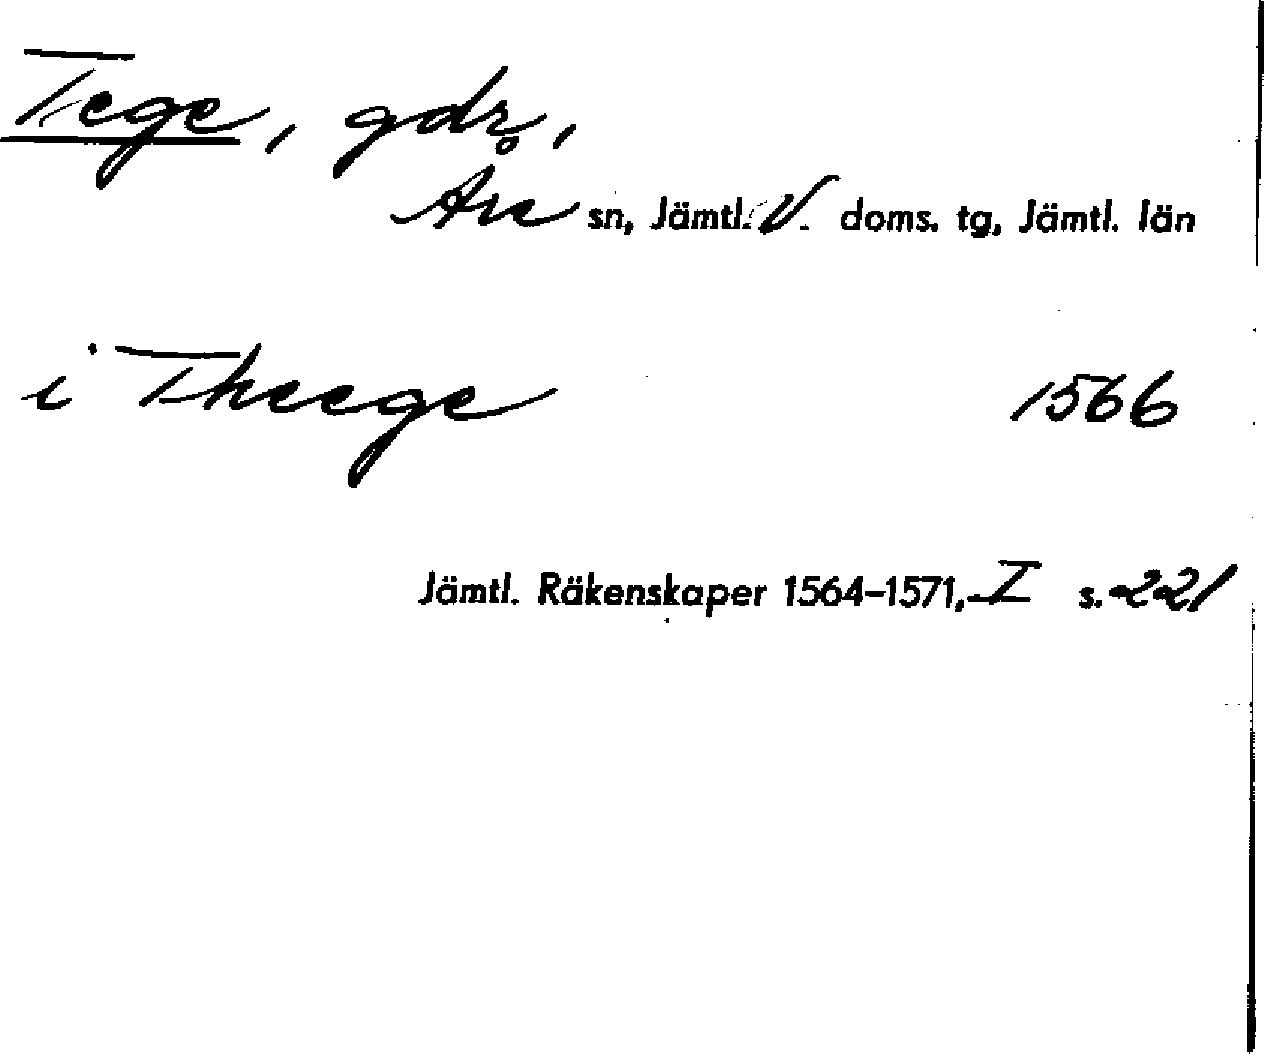 Tege, gdr,
Åre sn, Jämtl. V. doms. tg, Jämtl. län
i Theege 1566
Jämtl. Räkenskaper 1564-1571, I s. 221